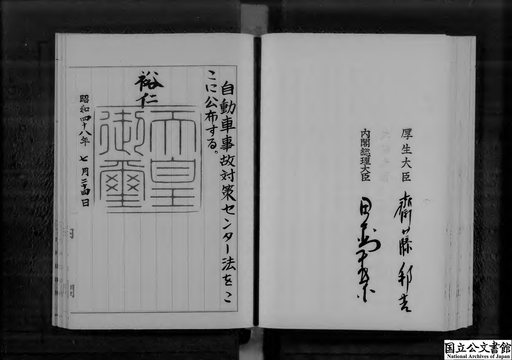 厚生大臣 齋藤邦吉
内閣総理大臣 田中角榮
自動車事故対策センター法をこ
こに公布する。
裕仁
天皇
御璽
昭和四十八年 七月二十四日
国立公文書館
National Archives of Japan